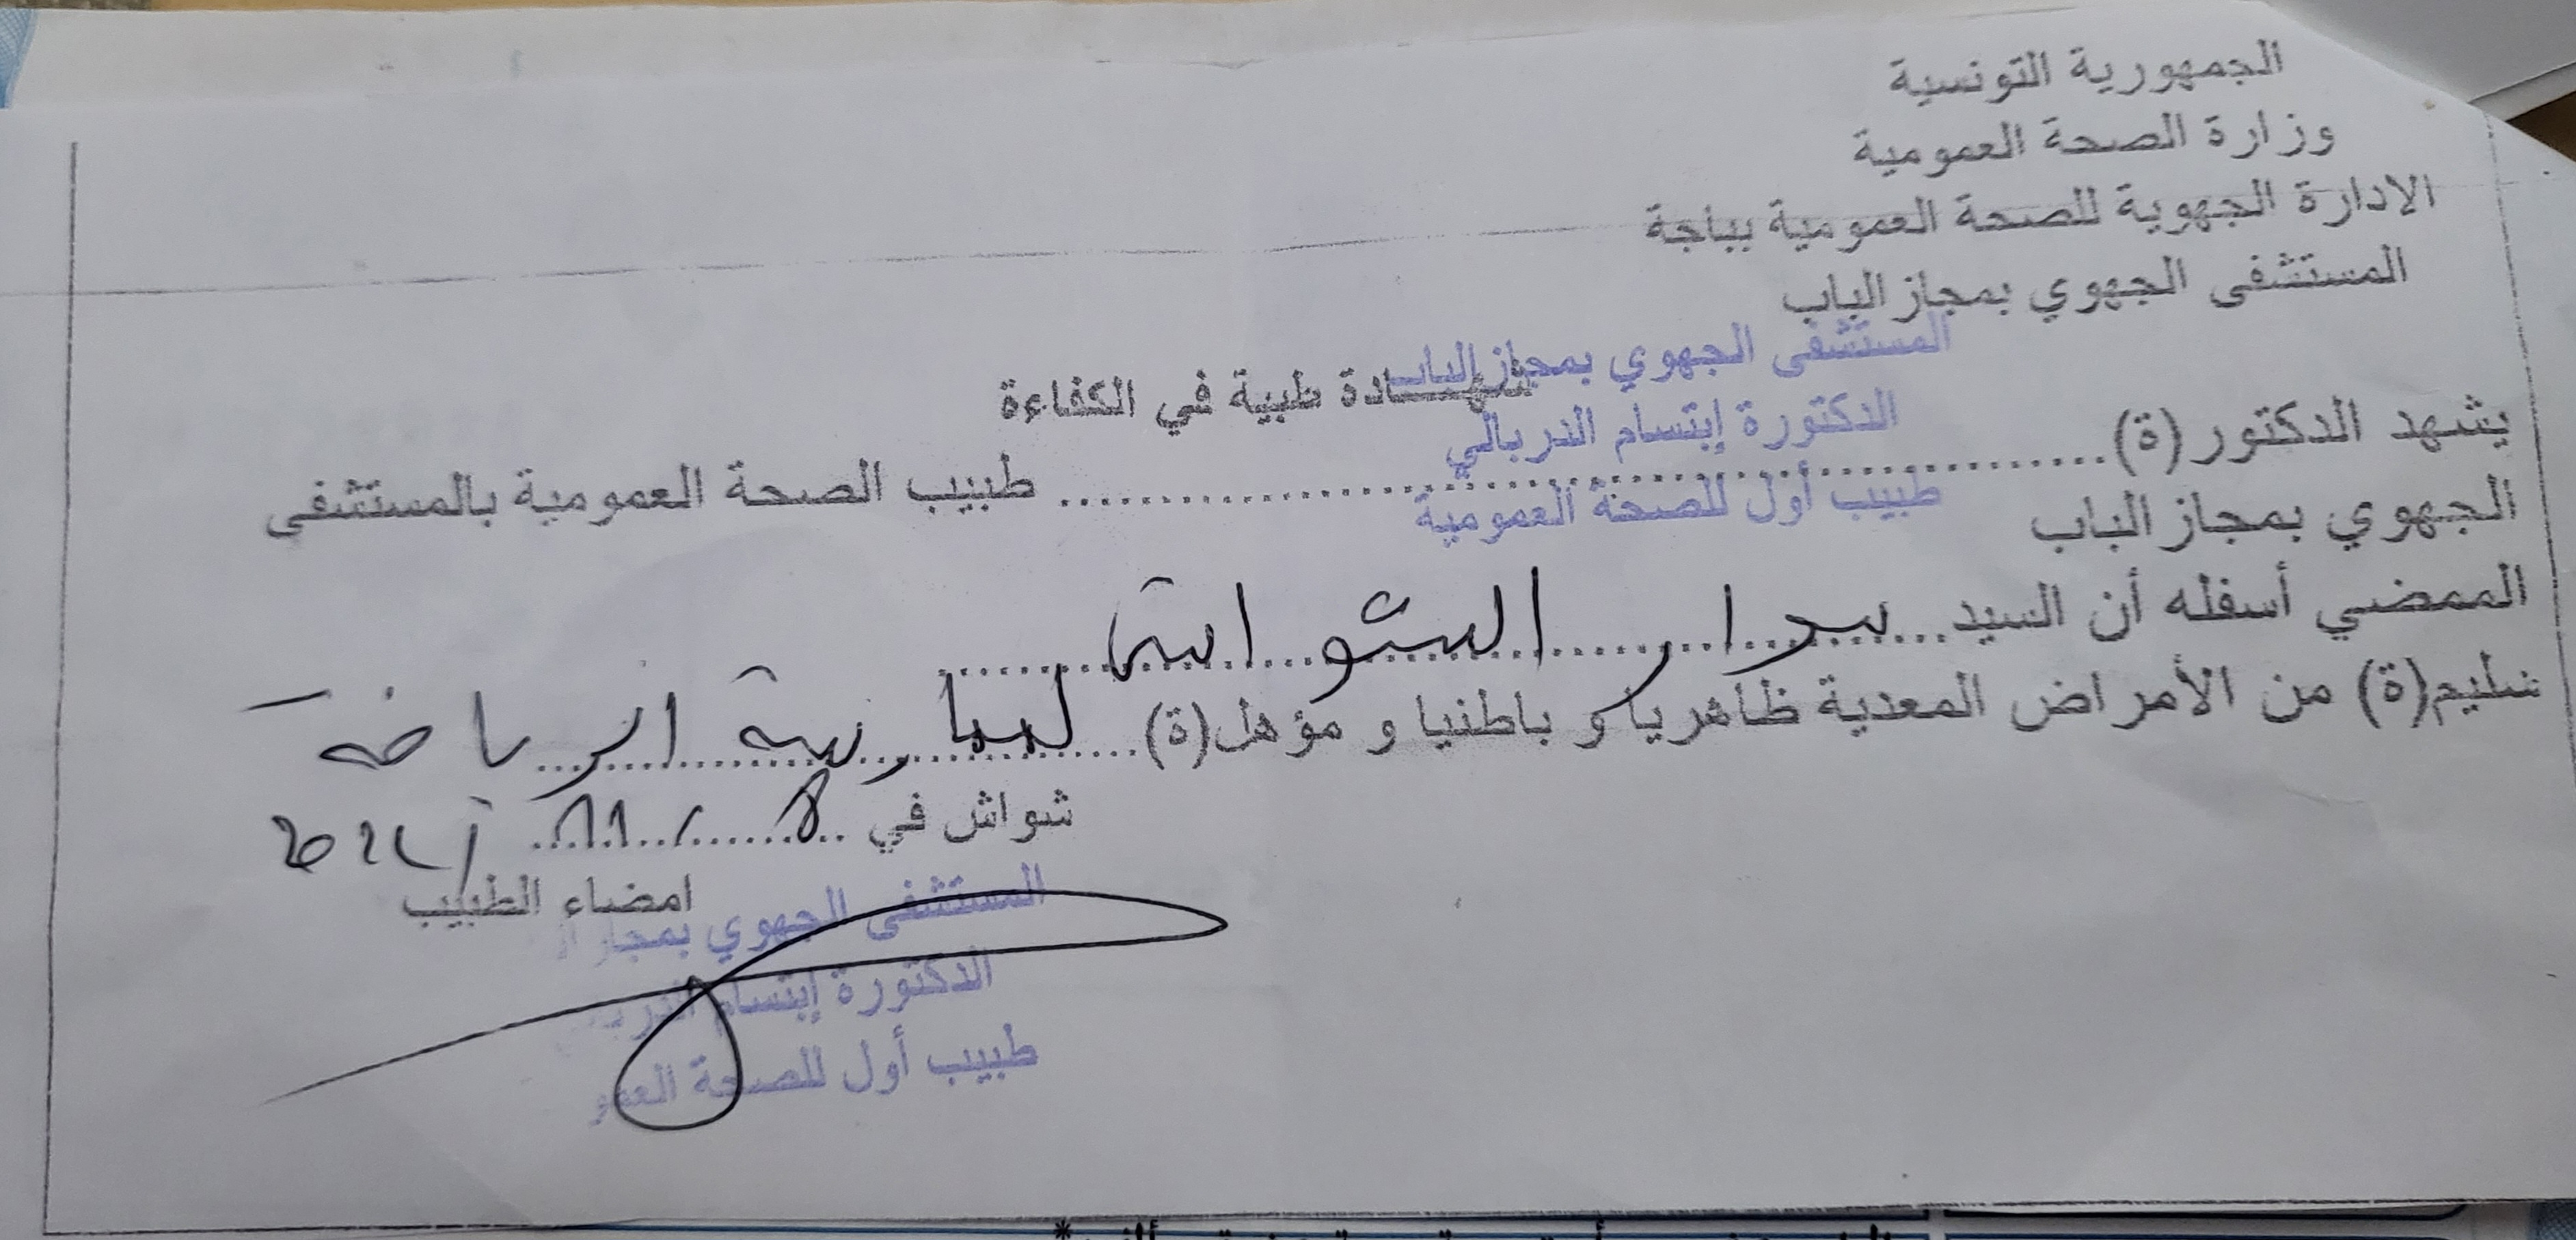 الجمهورية التونسية
وزارة الصحة العمومية
الادارة الجهوية للصحة العمومية بباجة
المستشفى الجهوي بمجاز الباب
شهـــادة طبية في الكفاءة
المستشفى الجهوي بمجاز الباب
الدكتورة إبتسام الدربالي
طبيب أول للصحة العمومية
يشهد الدكتور (ة)........ طبيب الصحة العمومية بالمستشفى
الجهوي بمجاز الباب
الممضي أسفله أن السيد
سليم(ة) من الأمراض المعدية ظاهريا و باطنيا و مؤهل(ة) لممارسة الرياضة
شواش في 8 / 11 / 2021
امضاء الطبيب
المستشفى الجهوي بمجاز ا
الدكتورة إبتسام الدربا
طبيب أول للصحة العمو